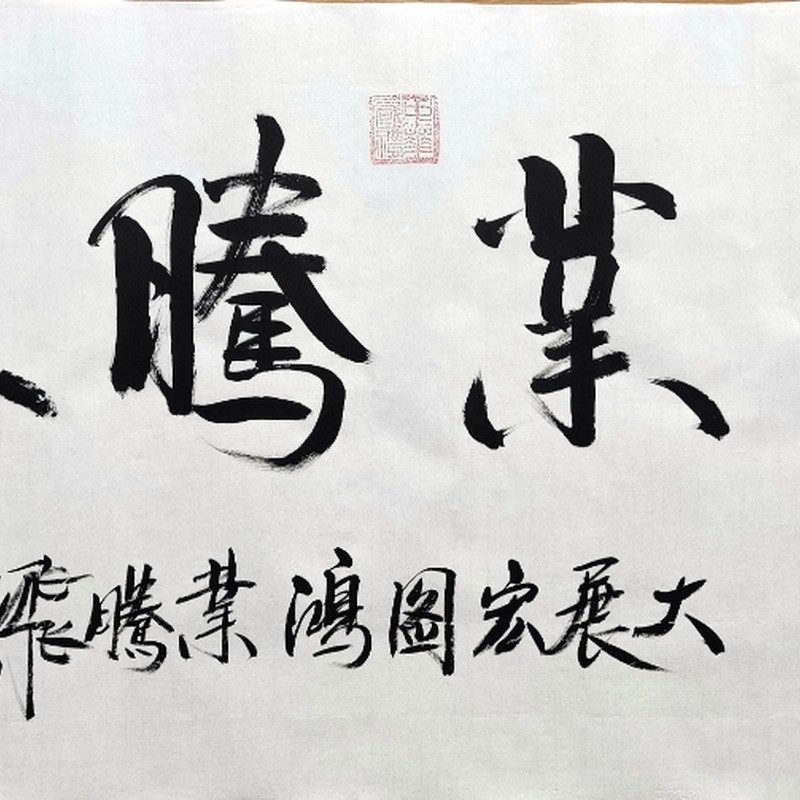 業騰
大展宏圖鴻業騰飛